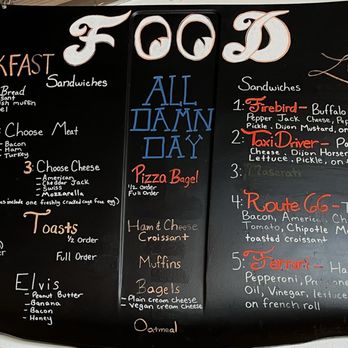 FOOD
KFAST
Sandwiches
Bread
muffin
Bagel
Choose Meat
- Bacon
- Ham
- Turkey
3: Choose Cheese
- American
- Cheddar Jack
- Swiss
- Mozzarella
include one freshly cracked cage free egg)
Toasts
1/2 Order
Full Order
Elvis
- Peanut Butter
- Banana
- Bacon
- Honey
ALL
DAMN
DAY
Pizza Bagel
1/2 Order
Full Order
Ham & Cheese
Croissant
Muffins
Bagels
- Plain cream cheese
- Vegan cream cheese
Oatmeal
Sandwiches
1: Firebird - Buffalo
Pepper Jack Cheese,
Pickle, Dijon Mustard, on
2: Taxi Driver -
Cheese, Dijon
Lettuce, pickle, on
3: Maserati
4: Route 66 -
Bacon, American
Tomato, Chipotle
toasted croissant
5: Ferrari -
Pepperoni,
Oil, Vinegar,
on french roll